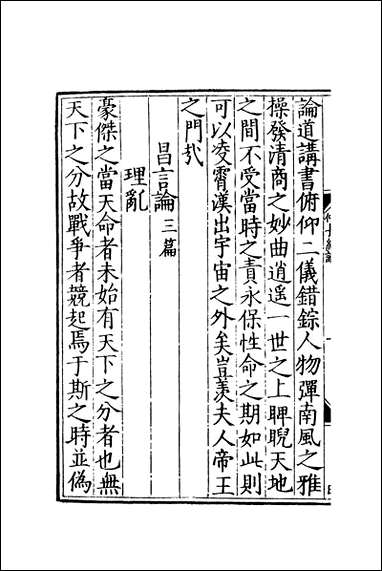 論道講書俯仰二儀錯綜人物彈南風之雅
操發清商之妙曲逍遥一世之上睥睨天地
之間不受當時之責永保性命之期如此則
可以凌霄漢出宇宙之外矣豈羨夫人帝王
之門㢤
昌言論三篇
理亂
豪傑之當天命者未始有天下之分者也無
天下之分故戰爭者競起焉于斯之時並偽